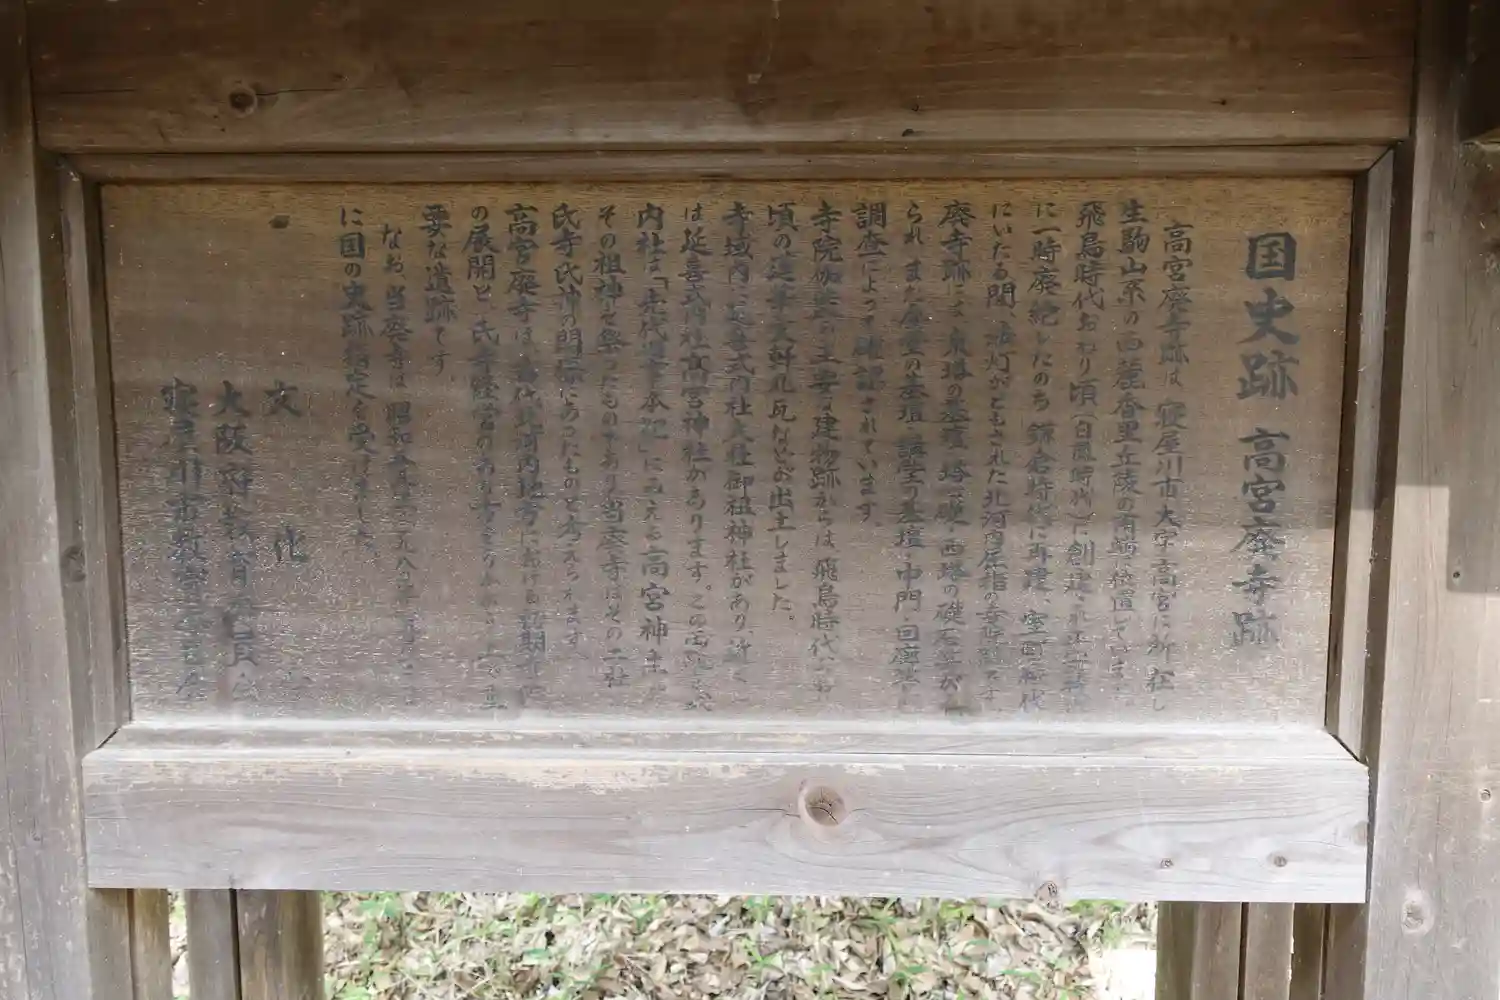 国史跡 高宮廃寺跡
高宮廃寺跡は、寝屋川市大字高宮に所在し
生駒山系の西麓香里丘陵の南端に位置していま
飛鳥時代おわり頃(白鳳時代)に創建され平安時代
に一時廃絶したのち、鎌倉時代に再建、室町時代
にいたる間、法灯がともされた北河内屈指の寺院跡です
廃寺跡には、東塔の基壇・塔礎・西塔の礎石等が
られ、また金堂の基壇・講堂の基壇・中門・回廊
調査によって確認されています。
寺院伽藍の主要な建物跡からは、飛鳥時代
頃の蓮華文軒丸瓦などが出土しました。
寺域内に延喜式内社大杜御祖神社があり、近く
は延喜式内社高宮神社があります。この両
内社は「先代旧事本記」にみえる高宮神主が
その祖神を祭ったものであり、当廃寺はその二社
氏寺氏神の関係にあったものと考えられます。
高宮廃寺は、古代北河内地方における初期
の展開と、氏寺経営のあり方を
要な遺跡です。
なお、当廃寺は、昭和
に国の史跡指定を受けました。
文化
大阪府教育委員会
寝屋川市教育委員会